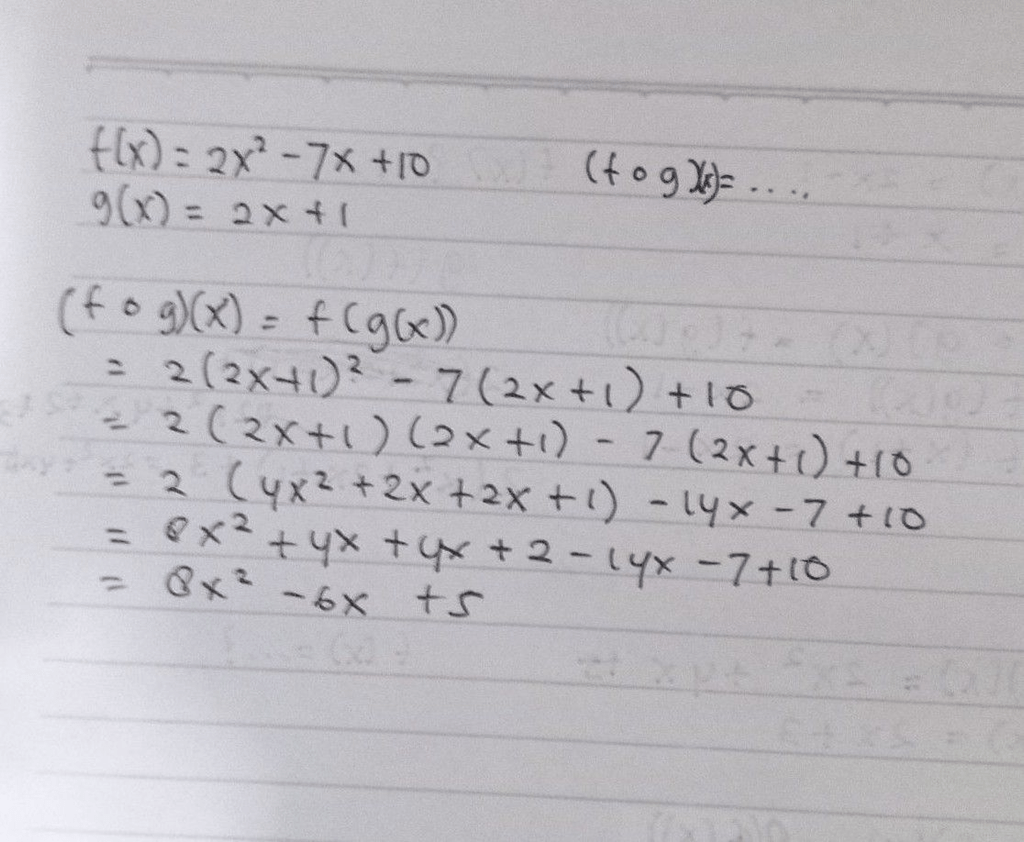 f(x) = 2x² - 7x + 10 (f o g)(x) = ....
g(x) = 2x + 1
(f o g)(x) = f(g(x))
= 2(2x+1)² - 7(2x+1) + 10
= 2(2x+1)(2x+1) - 7(2x+1) + 10
= 2 (4x² + 2x + 2x + 1) - 14x - 7 + 10
= 8x² + 4x + 4x + 2 - 14x - 7 + 10
= 8x² - 6x + 5